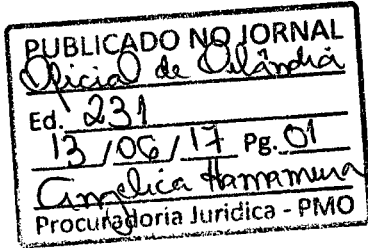 PUBLICADO NO JORNAL
Oficial de Orlândia
Ed. 231
13/06/17 Pg. 01
Angelica
Procuradoria Juridica - PMO